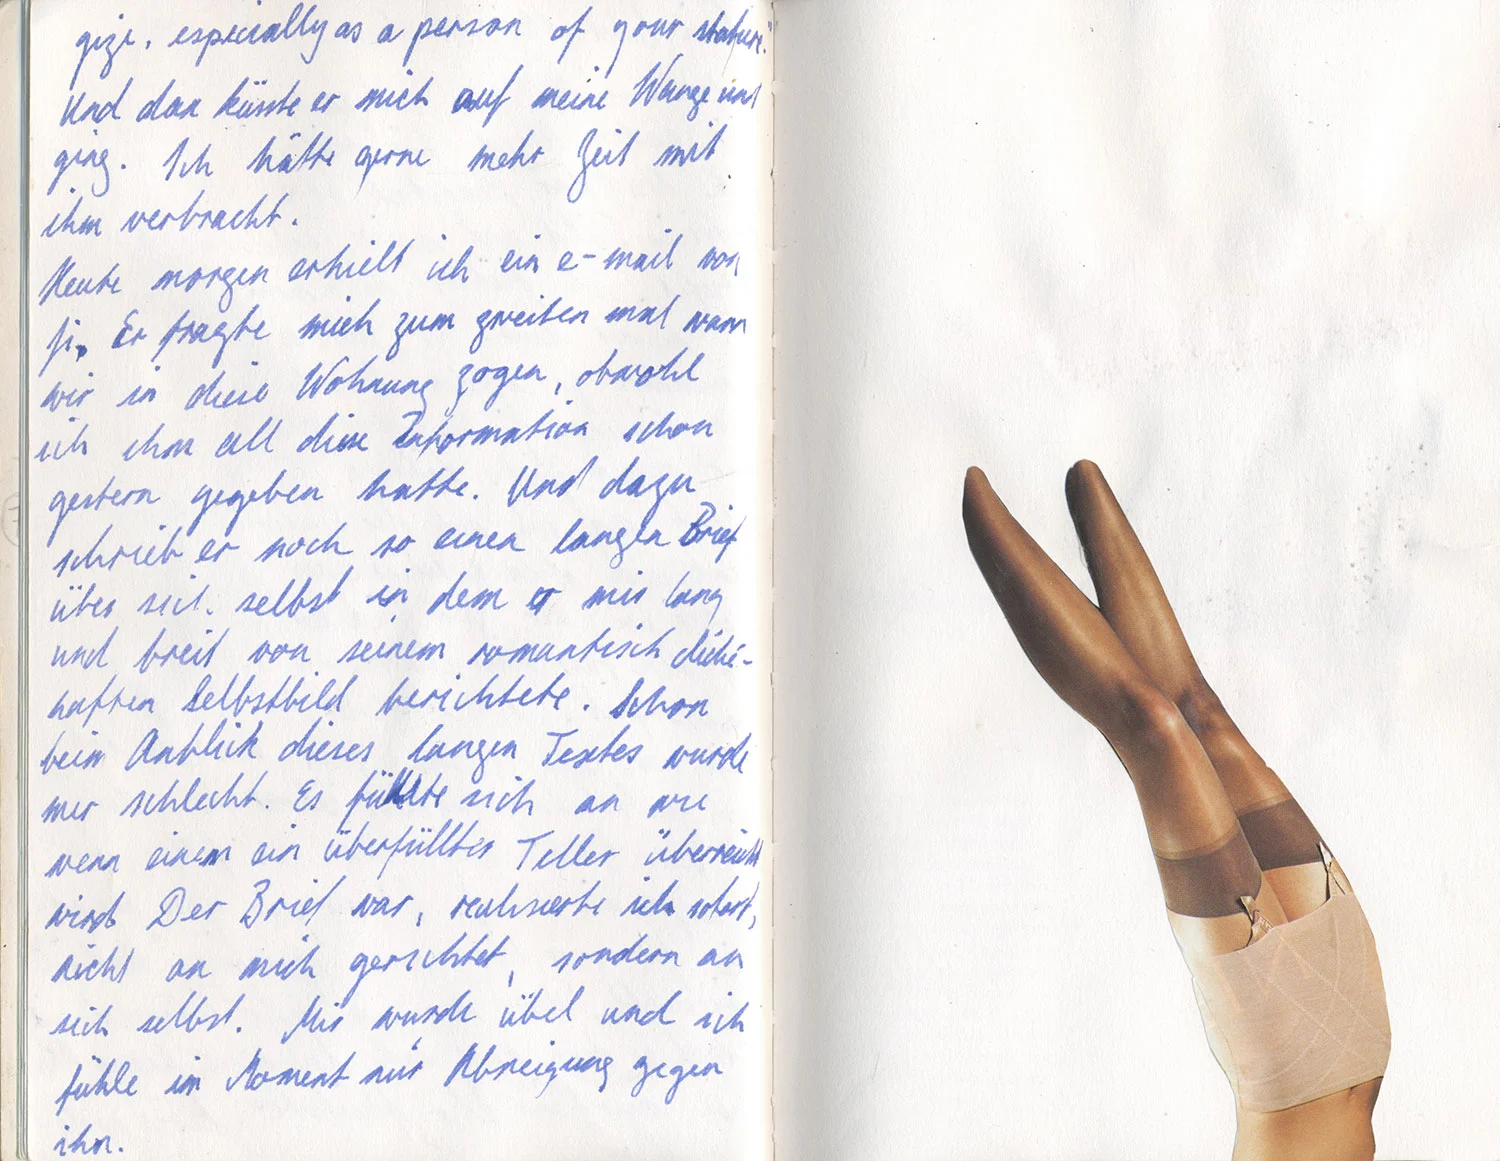 gize, especially as a person of your stature."
Und dan küsste er mich auf meine Wange und
ging. Ich hätte gerne mehr Zeit mit
ihm verbracht.
Heute morgen erhielt ich ein e-mail von
Ji. Er fragte mich zum zweiten mal wann
wir in diese Wohnung zogen, obwohl
ich ihm all diese Information schon
gestern gegeben hatte. Und dazu
schrieb er noch so einen langen Brief
über sich selbst in dem er mir lang
und breit von seinem romantisch cliché-
haften Selbstbild berichtete. Schon
beim Anblick dieses langen Textes wurde
mir schlecht. Es fühlte sich an wie
wenn einem ein überfüllter Teller überreicht
wird. Der Brief war, realisierte ich sofort,
nicht an mich gerichtet, sondern an
sich selbst. Mir wurde übel und ich
fühle im Moment nur Abneigung gegen
ihn.